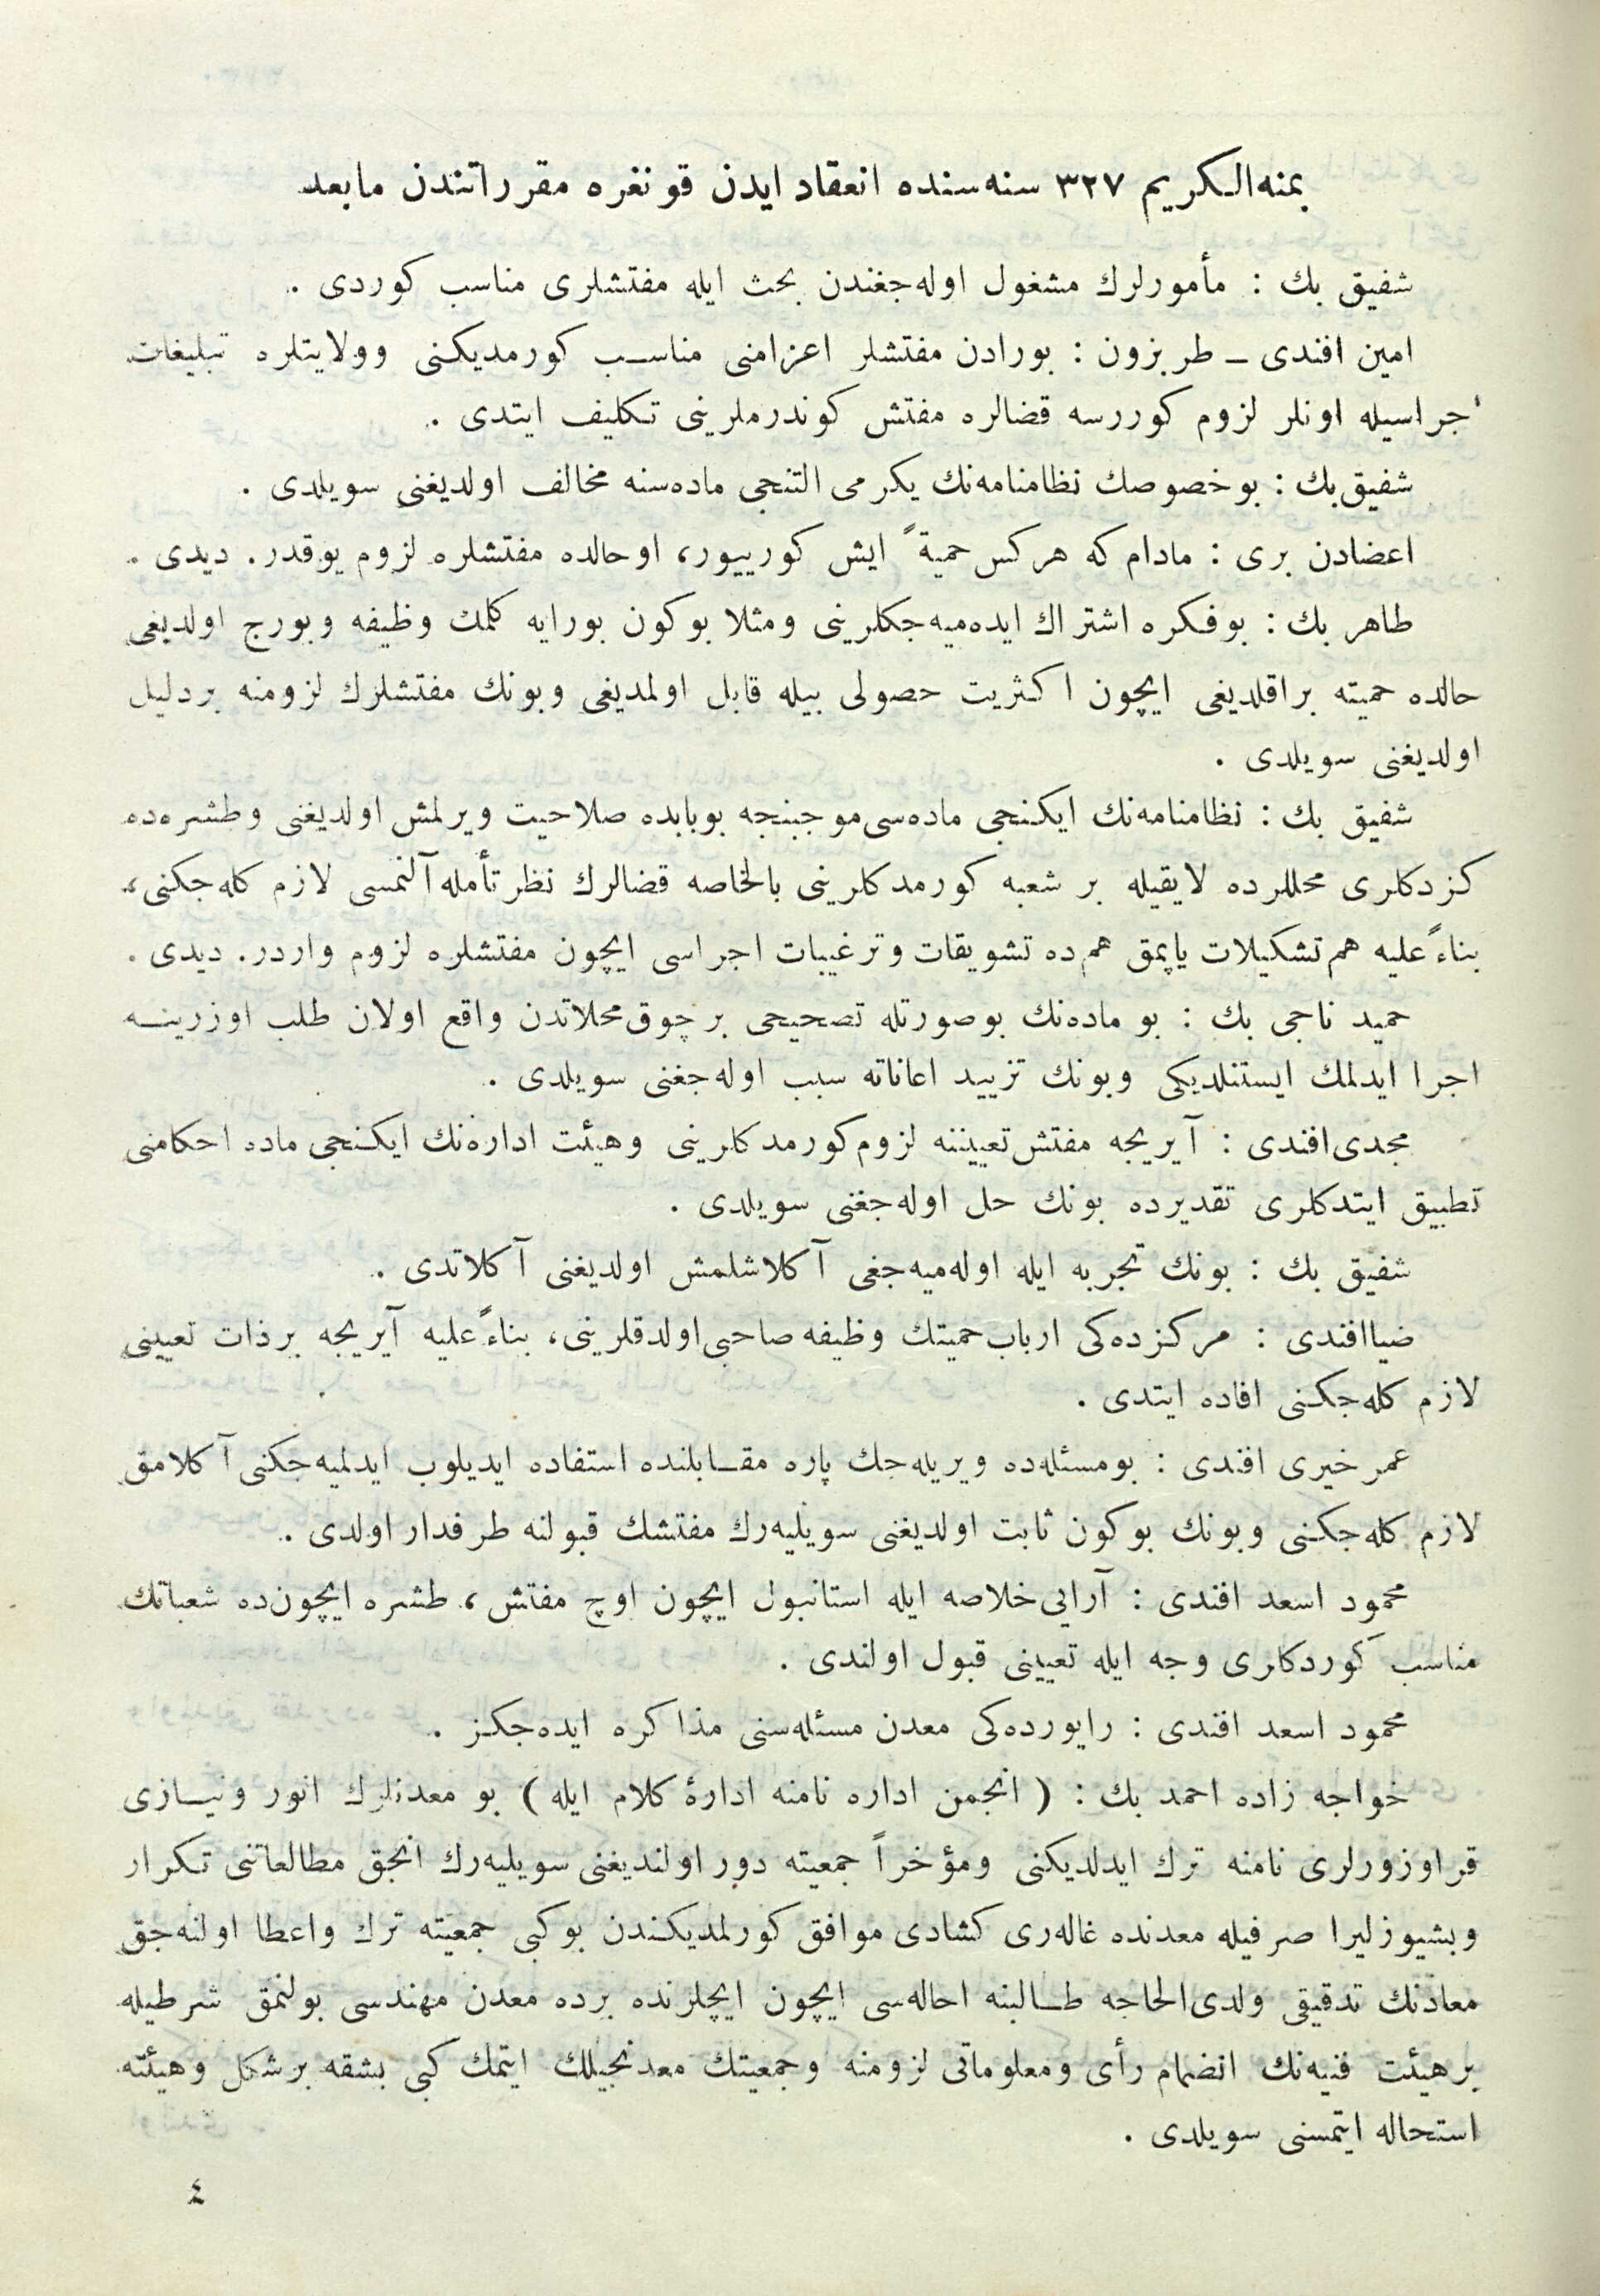 بمنه‌الكريم ٣٢٧ سنه‌سنده انعقاد ايدن قونغره مقرراتندن مابعد
شفيق بك : مأمورلرك مشغول اوله‌جغندن بحث ايله مفتشلرى مناسب كوردى .
امين افندى ــ طربزون : بورادن مفتشلر اعزامنى مناسب كورمديكنى وولايتلره تبليغات
اجراسيله اونلر لزوم كوررسه قضالره مفتش كوندرملرينى تكليف ايتدى .
شفيق‌بك : بوخصوصك نظامنامه‌نك يكرمى التنجى ماده‌سنه مخالف اولديغنى سويلدى .
اعضادن برى : مادام كه هركس حميةً ايش كورييور، اوحالده مفتشلره لزوم يوقدر. ديدى .
طاهر بك : بوفكره اشتراك ايده‌ميه‌جكلرينى ومثلا بوكون بورايه كلمك وظيفه وبورج اولديغى
حالده حميته براقلديغى ايچون اكثريت حصولى بيله قابل اولمديغى وبونك مفتشلرك لزومنه بردليل
اولديغنى سويلدى .
شفيق بك : نظامنامه‌نك ايكنجى ماده‌سى‌موجبنجه بوبابده صلاحيت ويرلمش اولديغنى وطشره‌ده
كزدكلرى محللرده لايقيله بر شعبه كورمدكلرينى بالخاصه قضالرك نظرتأمله آلنمسى لازم كله‌جكنى،
بناءًعليه هم‌تشكيلات ياپمق هم‌ده تشويقات وترغيبات اجراسى ايچون مفتشلره لزوم واردر. ديدى .
حميد ناجى بك : بو ماده‌نك بوصورتله تصحيحى برچوق‌محلاتدن واقع اولان طلب اوزرينه
اجرا ايدلمك ايستنلديكى وبونك تزييد اعاناته سبب اوله‌جغنى سويلدى .
مجدى‌افندى : آيريجه مفتش‌تعييننه لزوم‌كورمدكلرينى وهيئت اداره‌نك ايكنجى ماده احكامنى
تطبيق ايتدكلرى تقديرده بونك حل اوله‌جغنى سويلدى .
شفيق بك : بونك تجربه ايله اوله‌ميه‌جغى آكلاشلمش اولديغنى آكلاتدى .
ضياافندى : مركزده‌كى ارباب‌حميتك وظيفه صاحبى‌اولدقلرينى، بناءًعليه آيريجه برذات تعيينى
لازم كله‌جكنى افاده ايتدى .
عمر خيرى افندى : بومسئله‌ده ويريله‌جك پاره مقابلنده استفاده ايديلوب ايدلميه‌جكنى آكلامق
لازم كله‌جكنى وبونك بوكون ثابت اولديغنى سويليه‌رك مفتشك قبولنه طرفدار اولدى .
محمود اسعد افندى : آرايى‌خلاصه ايله استانبول ايچون اوچ مفتش ، طشره ايچون‌ده شعباتك
مناسب كوردكلرى وجه ايله تعيينى قبول اولندى .
محمود اسعد افندى : راپورده‌كى معدن مسئله‌سنى مذاكره ايده‌جكز .
خواجه زاده احمد بك : ( انجمن اداره نامنه ادارهٔ كلام ايله ) بو معدنلرك انور ونيازى
قراوزورلرى نامنه ترك ايدلديكنى ومؤخراً جمعيته دور اولنديغنى سويليه‌رك انجق مطالعاتنى تكرار
وبشيوزليرا صرفيله معدنده غاله‌رى كشادى موافق كورلمديكندن بوكبى جمعيته ترك واعطا اولنه‌جق
معادنك تدقيقى ولدى‌الحاجه طالبنه احاله‌سى ايچون ايچلرنده برده معدن مهندسى بولنمق شرطيله
برهيئت فنيه‌نك انضمام رأى ومعلوماتى لزومنه وجمعيتك معدنجيلك ايتمك كبى بشقه برشكل وهيئته
استحاله ايتمسنى سويلدى .
٤